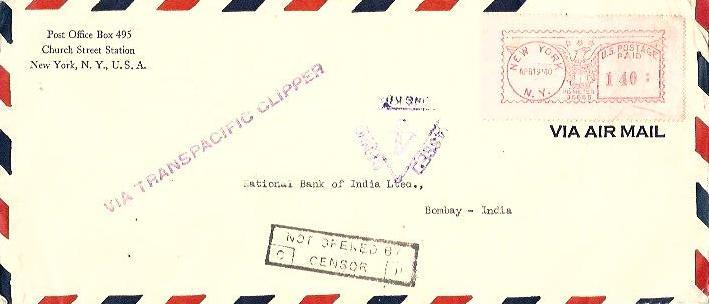 Post Office Box 495
Church Street Station
New York, N. Y., U. S. A.
NEW YORK
N. Y.
U.S. POSTAGE
PAID
1 40
VIA AIR MAIL
VIA TRANSPACIFIC CLIPPER
National Bank of India Lteo.,
Bombay - India
NOT OPENED BY
CENSOR